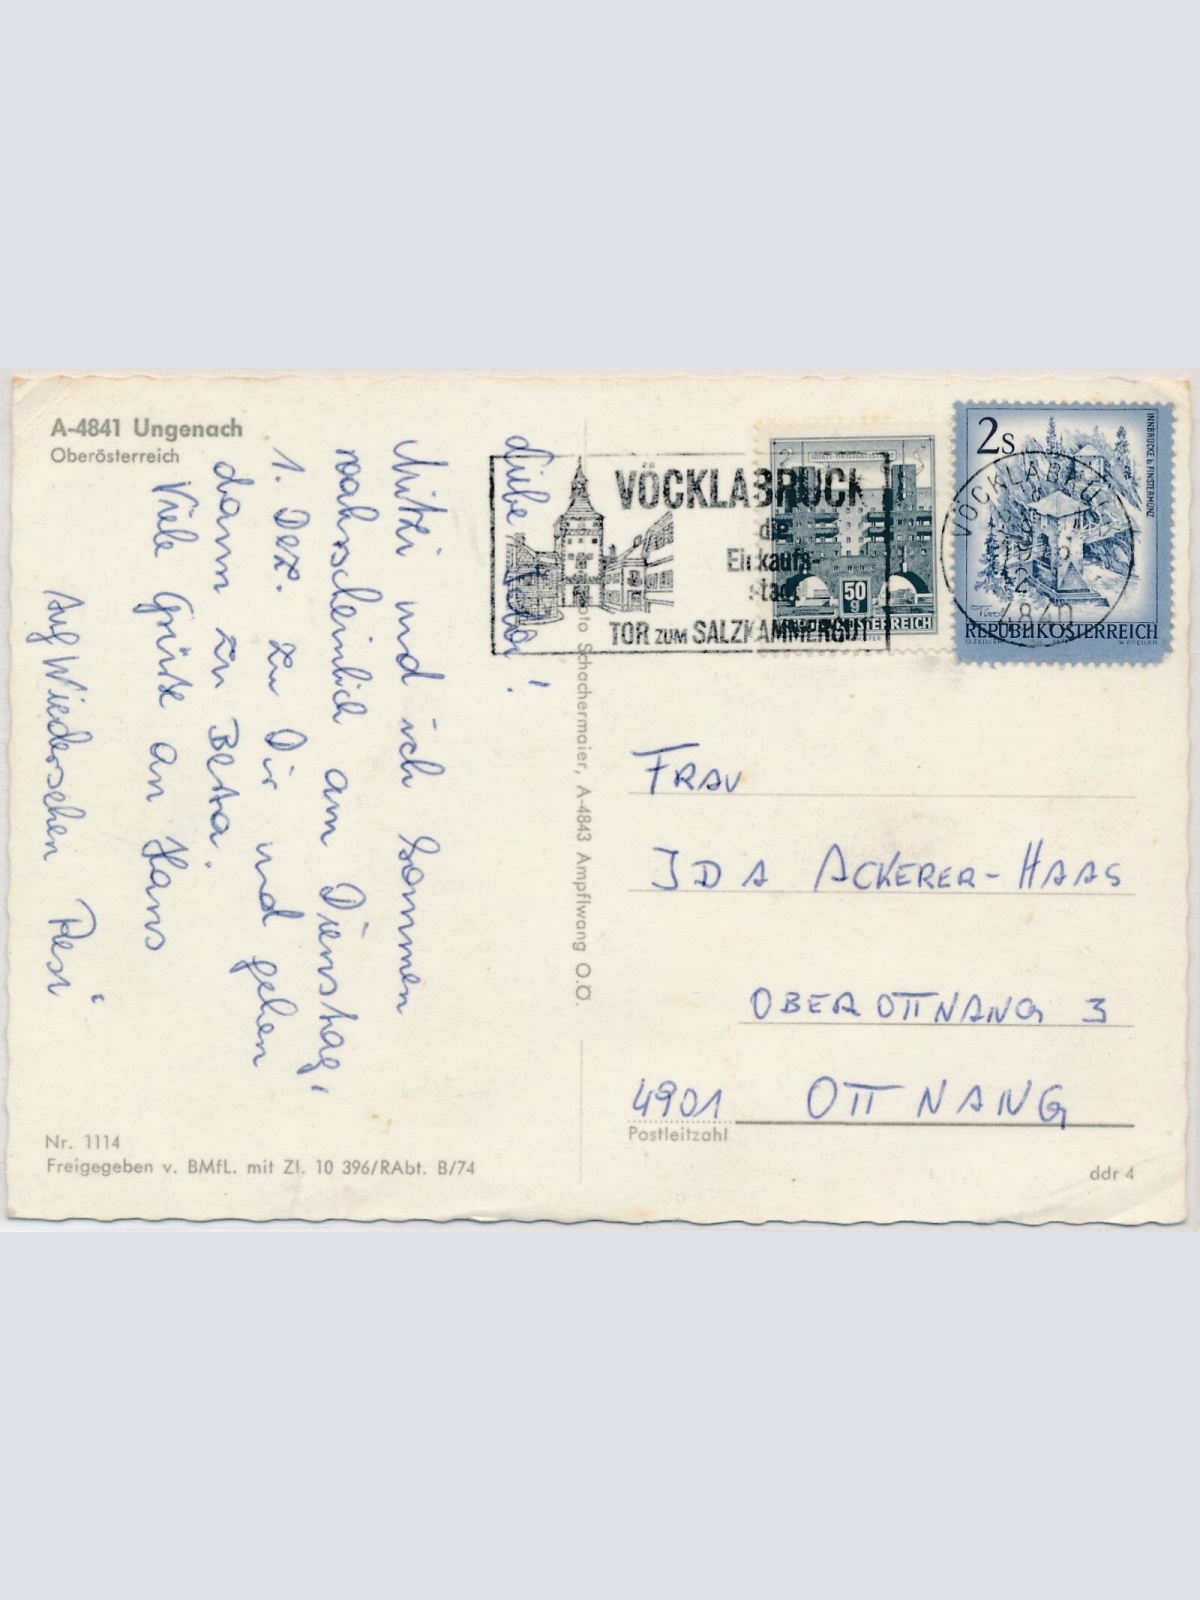 A-4841 Ungenach
Oberösterreich
Liebe
Mitzi und ich kommen
wahrscheinlich am Dienstag,
1. Dez. zu Dir und gehen
dann zur Berta.
Viele Grüße an Hans
Auf Wiedersehen Resi
Nr. 1114
Freigegeben v. BMfL. mit Zl. 10 396/RAbt. B/74
Foto Schachermaier, A-4843 Ampflwang O.Ö.
VÖCKLABRUCK
die
Einkaufs-
stadt
TOR ZUM SALZKAMMERGUT
50
g
2S
INNBRÜCKE b. FINSTERMÜNZ
REPUBLIK ÖSTERREICH
VÖCKLABRUCK
4840
FRAU
IDA ACKERER-HAAS
OBEROTTNANG 3
4901 OTTNANG
Postleitzahl
ddr 4